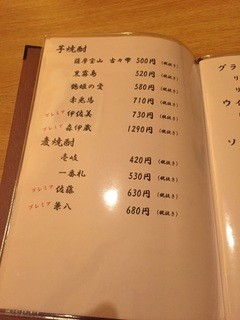 芋焼酎
薩摩宝山 吉々㐂 500円 (税抜き)
黒霧島 520円 (税抜き)
鶴姫の愛 580円 (税抜き)
赤兎馬 710円 (税抜き)
プレミア 伊佐美 730円 (税抜き)
プレミア 森伊蔵 1290円 (税抜き)
麦焼酎
壱岐 420円 (税抜き)
一番札 530円 (税抜き)
プレミア 佐藤 630円 (税抜き)
プレミア 兼八 680円 (税抜き)
グラ
リ
ウイ
ソ